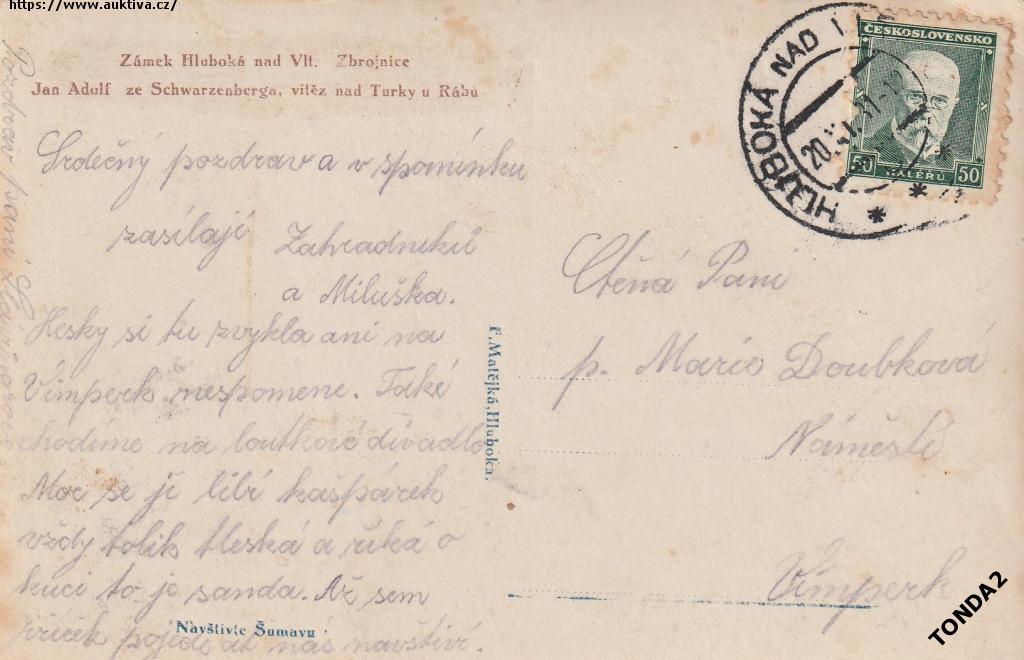 https://www.auktiva.cz/
Zámek Hluboká nad Vlt. Zbrojnice
Jan Adolf ze Schwarzenberga, vítěz nad Turky u Rábu
Srdečný pozdrav a v spomínku
zasílají Zahradníků
a Miluška.
Hesky si tu zvykla ani na
Vimperk nespomene. Také
chodíme na loutkové divadlo
Moc se jí líbí kašpárek
vždy tolik tleská a říká o
kluci to je sanda. Až sem
pojede ať nás navštíví.
Navštivte Šumavu
Pozdrav paní
F. Matějka, Hluboka.
HLUBOKÁ NAD
20. 31
ČESKOSLOVENSKO
50 HALÉŘŮ 50
Ctěná Paní
p. Marie Doubková
Náměstí
Vimperk
TONDA2